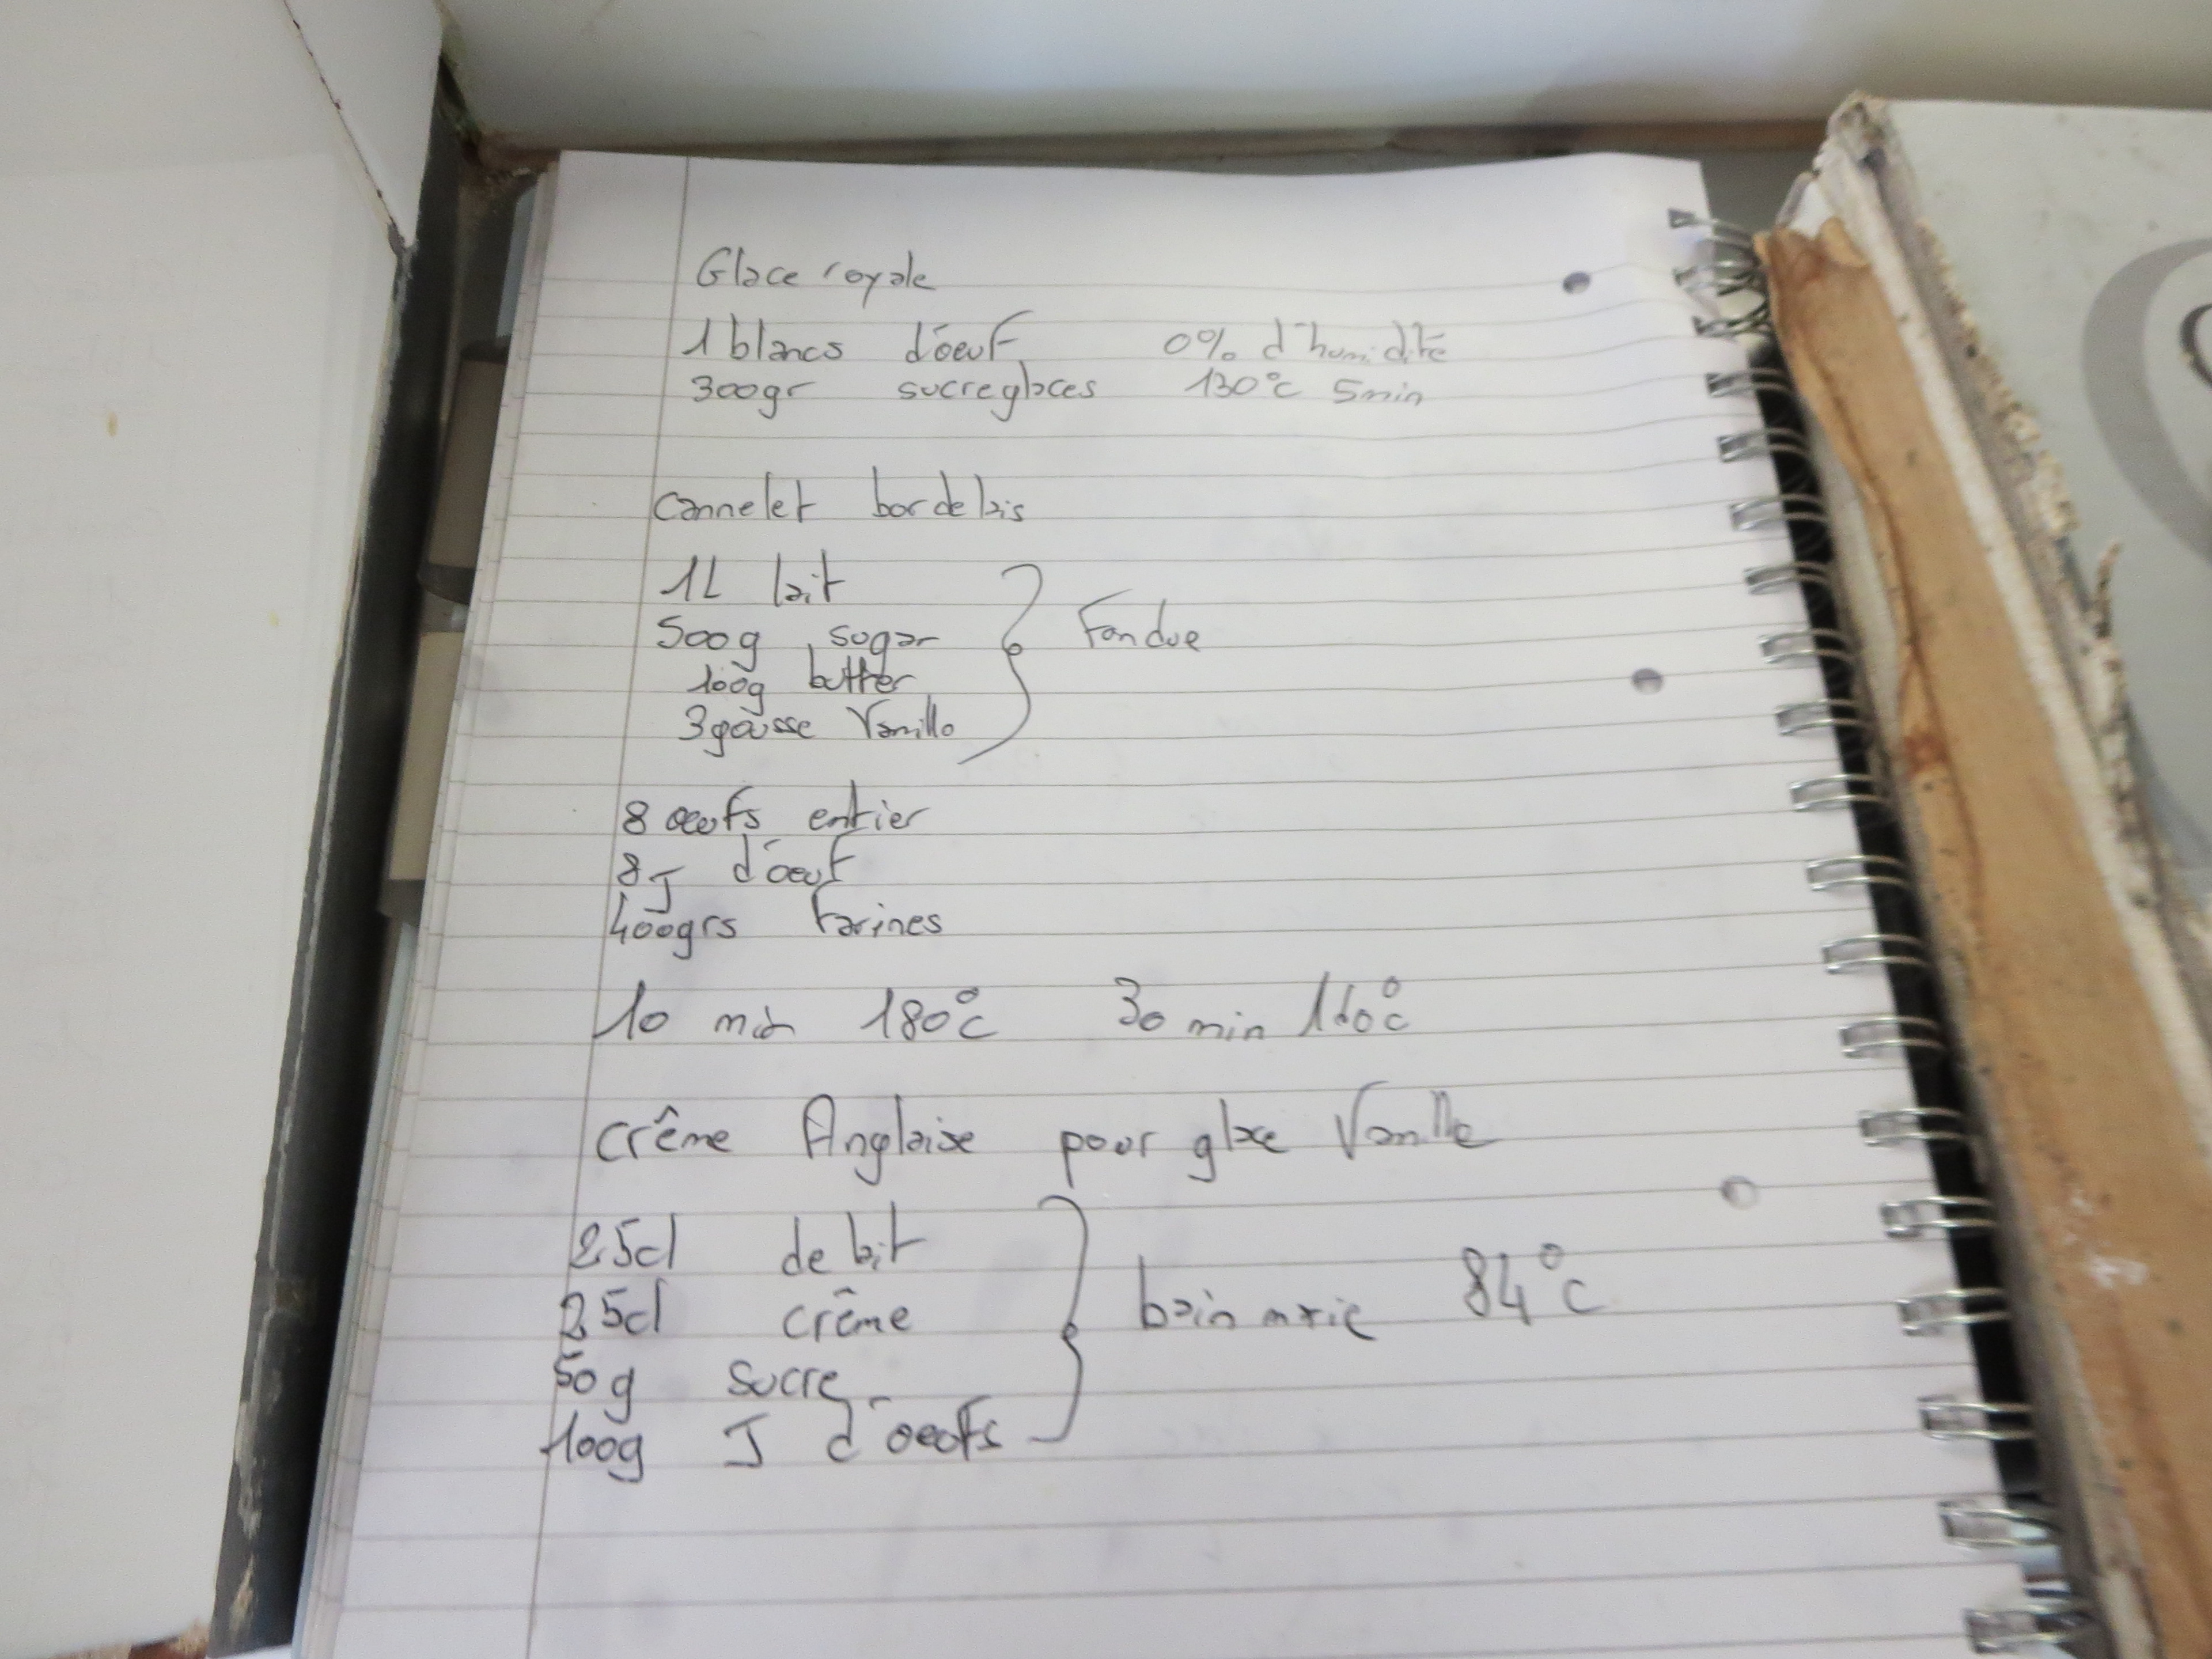 Glace royale
1 blancs d'oeuf 0% d'humidité
300gr sucre glaces 130°c 5min
Cannelet bordelais
1L lait
500g sugar
100g butter
3 gousse Vanille
Fondue
8 oeufs entier
8 J d'oeuf
400grs farines
10 min 180°c 30 min 160°c
Crême Anglaise pour glace Vanille
25cl de lait
25cl crême
50g sucre
100g J d'oeufs
bain marie 84°c